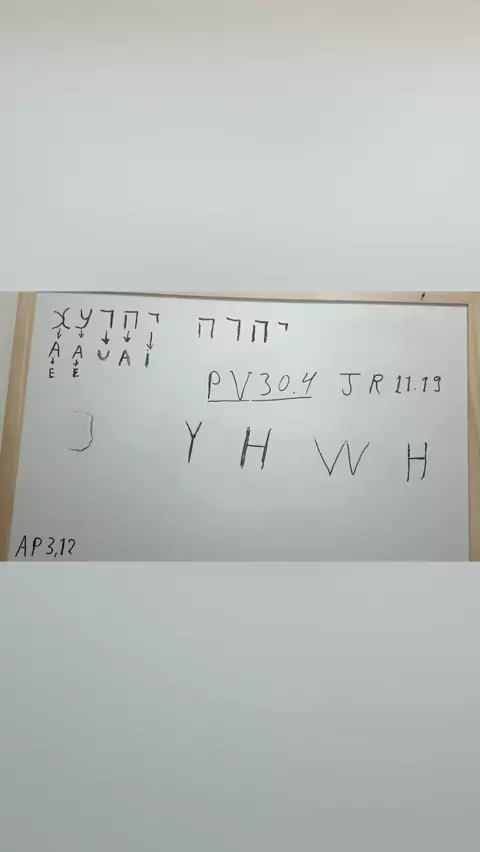 י ה ו ע א יהוה
A A U A I
E E
PV30.4 JR 11.19
Y H W H
AP3,12